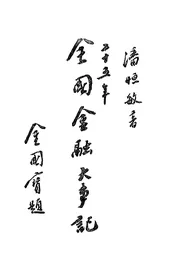 潘恒敏著
二十五年
全國金融大事記
金國寶題